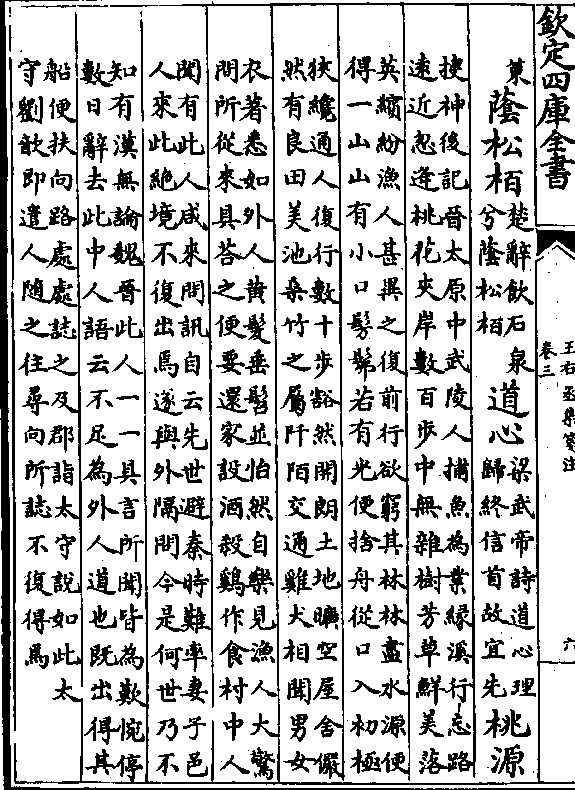 欽定四庫全書
王右丞集箋注
卷三
六
蔭松栢
楚辭飲石泉
兮蔭松栢
道心
梁武帝詩道心理
歸終信首故宜先
桃源
搜神後記晉太原中武陵人捕魚為業緣溪行忘路
遠近忽逢桃花夾岸數百步中無雜樹芳草鮮美落
英繽紛漁人甚異之復前行欲窮其林林盡水源便
得一山山有小口髣髴若有光便捨舟從口入初極
狹纔通人復行數十步豁然開朗土地曠空屋舍儼
然有良田美池桑竹之屬阡陌交通雞犬相聞男女
衣著悉如外人黄髮垂髫並怡然自樂見漁人大驚
問所從來具荅之便要還家設酒殺鷄作食村中人
聞有此人咸來問訊自云先世避秦時難率妻子邑
人來此絶境不復出焉遂與外隔問今是何世乃不
知有漢無論魏晉此人一一具言所聞皆為歎惋停
數日辭去此中人語云不足為外人道也既出得其
船便扶向路處處誌之及郡詣太守說如此太
守劉歆即遣人隨之往尋向所誌不復得焉